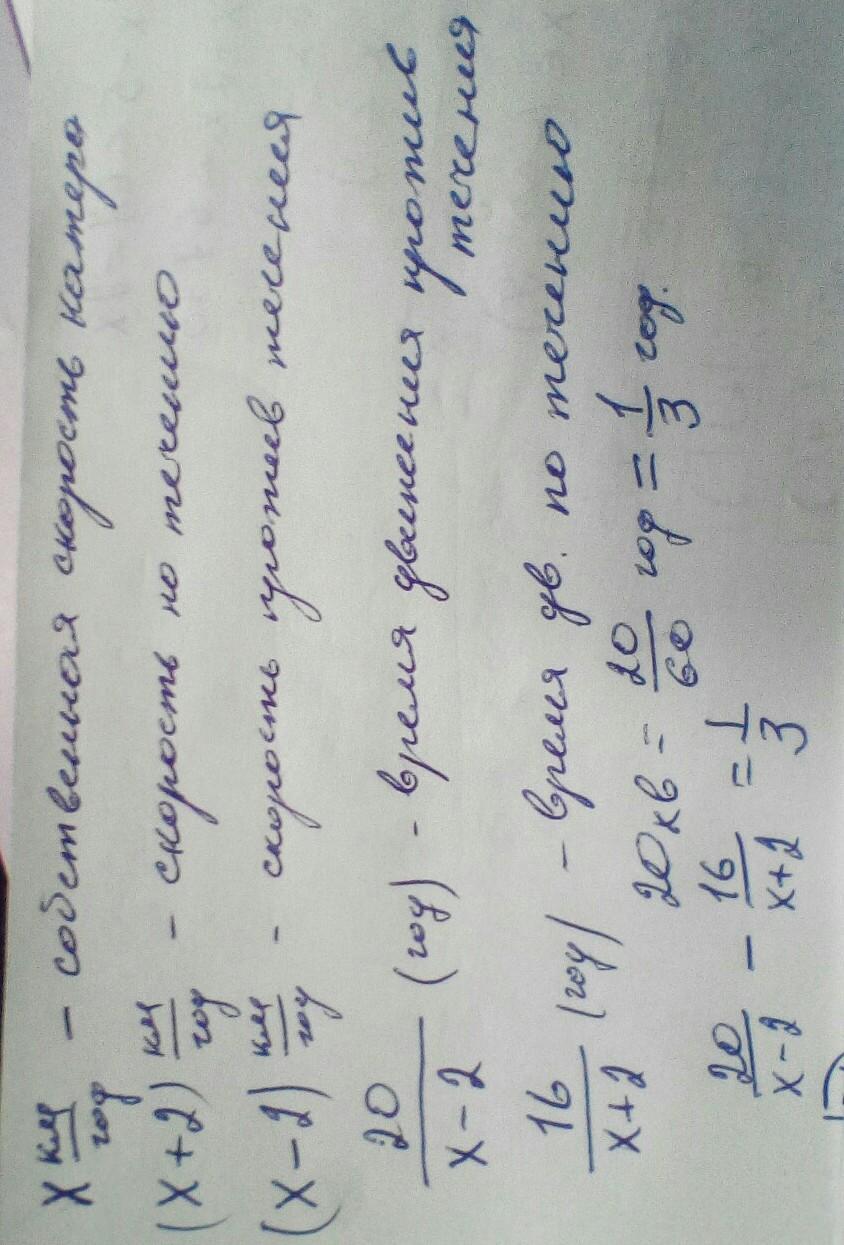 x км/год - собственная скорость катера
(x+2) км/год - скорость по течению
(x-2) км/год - скорость против течения
20/(x-2) (год) - время движения против
течения
16/(x+2) (год) - время дв. по течению
20хв = 20/60 год = 1/3 год.
20/(x-2) - 16/(x+2) = 1/3